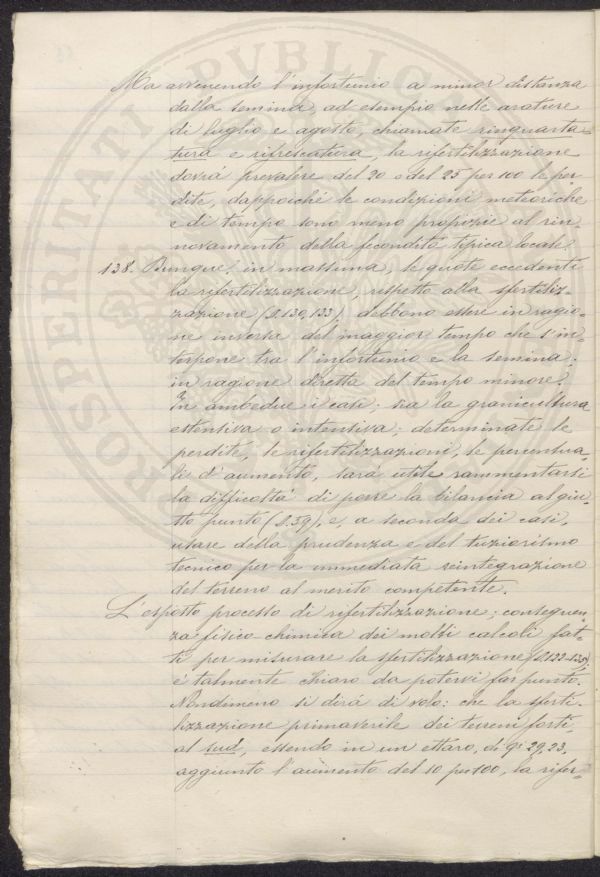 Ma avvenendo l'infortunio a minor distanza
dalla semina, ad esempio nelle arature
di luglio e agosto, chiamate rinquarta-
tura e rifrescatura, la rifertilizzazione
dovrà prevalere del 20 o del 25 per 100 le per-
dite, dappoiché le condizioni meteoriche
e di tempo sono meno propizie al rin-
novamento della fecondità tipica locale.
138. Dunque, in massima, le quote eccedenti
la rifertilizzazione, rispetto alla sfertiliz-
zazione (§.130,133) debbono essere in ragio-
ne inversa del maggior tempo che s'in-
terpone tra l'infortunio e la semina;
in ragione diretta del tempo minore.
In ambedue i casi, sia la granicultura
estensiva o intensiva; determinate le
perdite, le rifertilizzazioni, le percentua-
li d'aumento, sarà utile rammentarsi
la difficoltà di porre la bilancia al giu-
sto punto (§.59), e, a seconda dei casi,
usare della prudenza e del tuziorismo
tecnico per la immediata reintegrazione
del terreno al merito competente.
L'esposto processo di rifertilizzazione; conseguen-
za fisico-chimica dei molti calcoli fat-
ti per misurare la sfertilizzazione (§.122-135);
è talmente chiaro da potervi far punto.
Nondimeno si dirà di volo: che la sferti-
lizzazione primaverile dei terreni forti,
al sud, essendo in un ettaro, di q.i 29,23,
aggiunto l'aumento del 10 per 100, la rifer-
PROSPERITATI PVBLIC